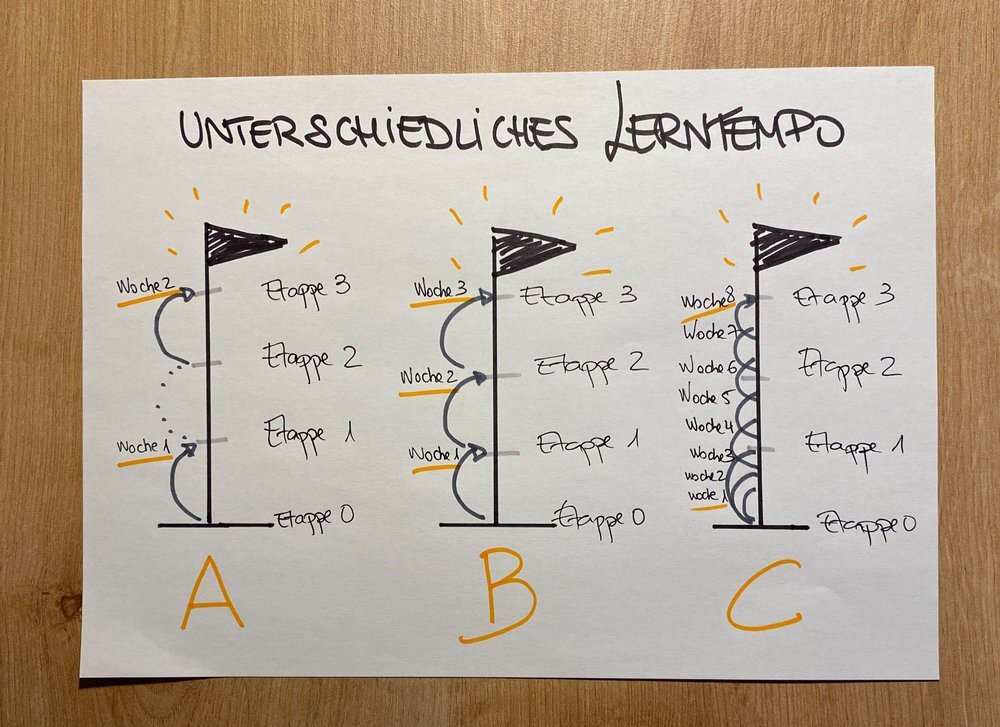 UNTERSCHIEDLICHES LERNTEMPO
Woche 2
Etappe 3
Etappe 2
Woche 1
Etappe 1
Etappe 0
A
Woche 3
Etappe 3
Woche 2
Etappe 2
Woche 1
Etappe 1
Etappe 0
B
Woche 8
Etappe 3
Woche 7
Woche 6
Etappe 2
Woche 5
Woche 4
Etappe 1
Woche 3
Woche 2
Woche 1
Etappe 0
C